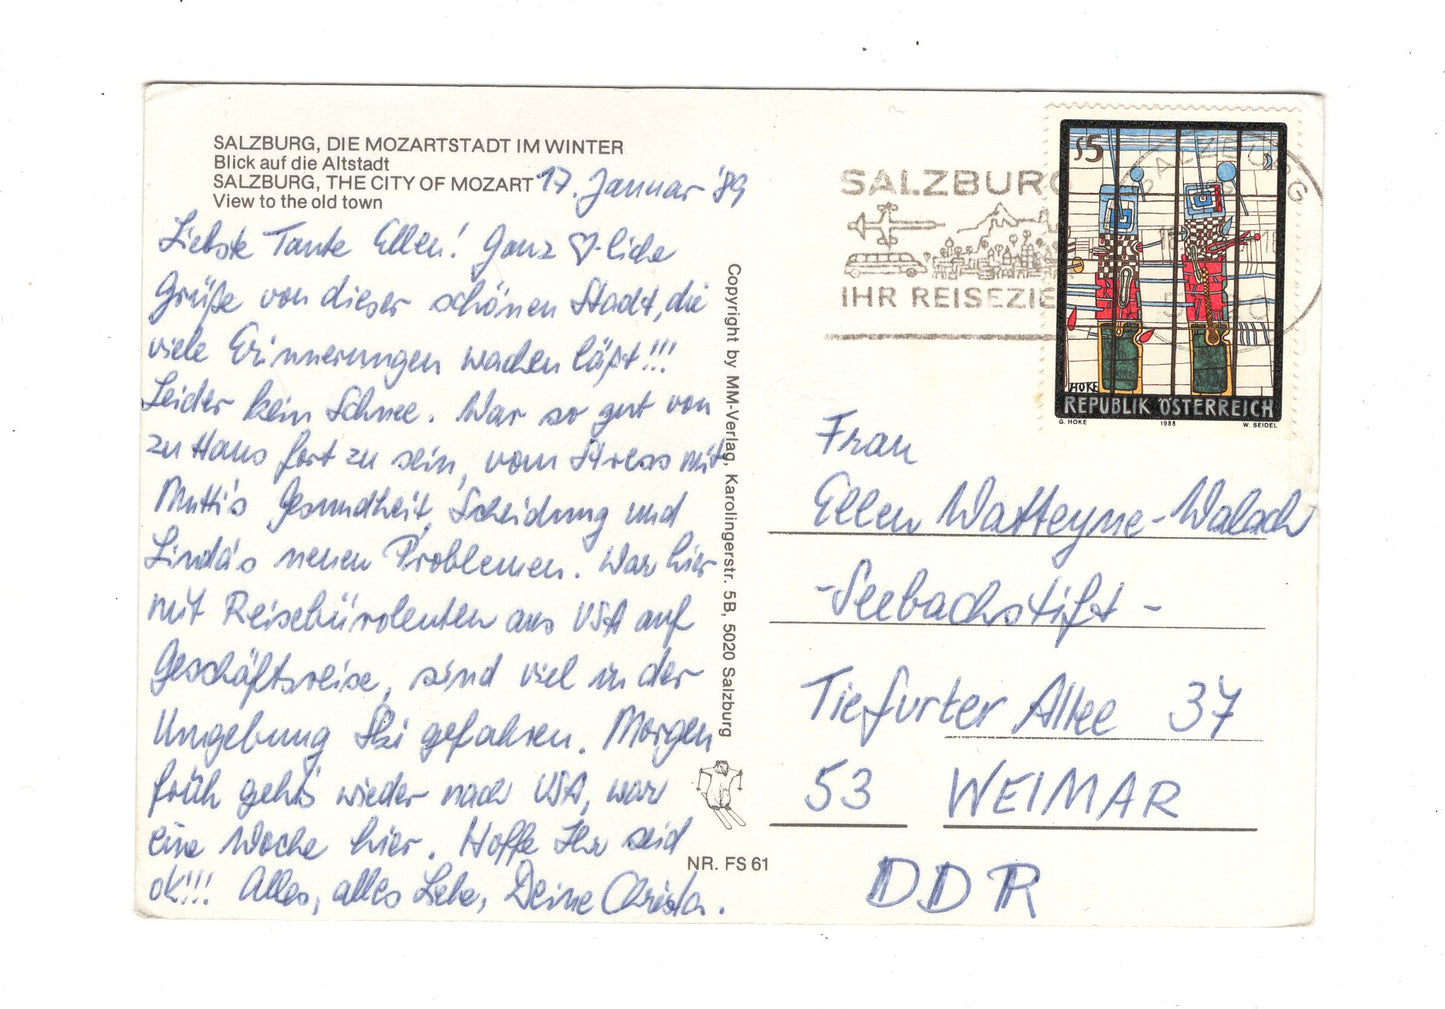 SALZBURG, DIE MOZARTSTADT IM WINTER
Blick auf die Altstadt
SALZBURG, THE CITY OF MOZART
View to the old town
17. Januar '89
Liebste Tante Ellen! Ganz ♡-liche
Grüße von dieser schönen Stadt, die
viele Erinnerungen wachen läßt!!!
Leider kein Schnee. War so gut von
zu Haus fort zu sein, vom Stress mit
Mutti's Gesundheit, Scheidung und
Linda's neuen Problemen. War hier
mit Reisebüroleuten aus USA auf
Geschäftsreise, sind viel in der
Umgebung Ski gefahren. Morgen
früh geht's wieder nach USA, war
eine Woche hier. Hoffe Ihr seid
ok!!! Alles, alles Liebe, Deine Christa.
Copyright by MM-Verlag, Karolingerstr. 5B, 5020 Salzburg
NR. FS 61
SALZBURG
IHR REISEZIE
SALZBURG
S5
HOKE
REPUBLIK ÖSTERREICH
G. HOKE 1988 W. SEIDEL
Frau
Ellen Watteyne-Walach
-Seebachstift-
Tiefurter Allee 37
53 WEIMAR
DDR